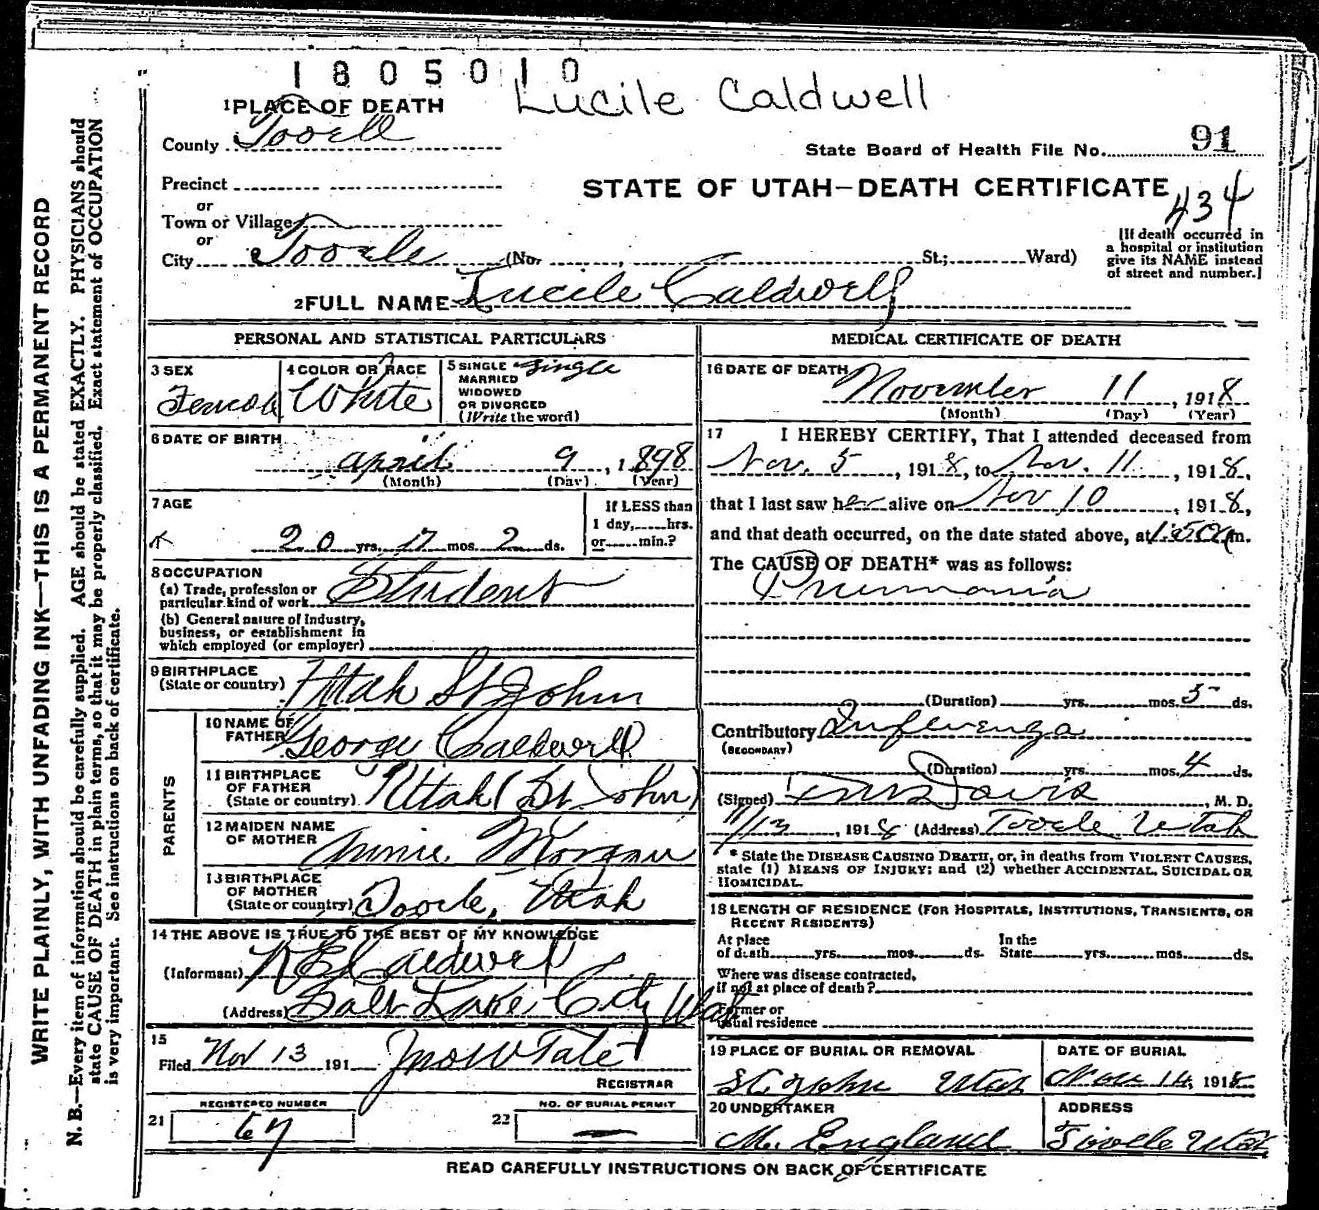 1805010
Lucile Caldwell
1 PLACE OF DEATH
County Tooell
State Board of Health File No. 91
Precinct
STATE OF UTAH—DEATH CERTIFICATE
434
or
Town or Village
or
City Tooele (No. , St.; Ward)
[If death occurred in
a hospital or institution
give its NAME instead
of street and number.]
2 FULL NAME Lucile Caldwell
PERSONAL AND STATISTICAL PARTICULARS
3 SEX
Female
4 COLOR OR RACE
White
5 SINGLE Single
MARRIED
WIDOWED
OR DIVORCED
(Write the word)
6 DATE OF BIRTH
April 9, 1898
(Month) (Day) (Year)
7 AGE
20 yrs. 17 mos. 2 ds.
If LESS than
1 day, hrs.
or min.?
8 OCCUPATION
(a) Trade, profession or
particular kind of work Student
(b) General nature of Industry,
business, or establishment in
which employed (or employer)
9 BIRTHPLACE
(State or country) Utah St John
PARENTS
10 NAME OF
FATHER George Caldwell
11 BIRTHPLACE
OF FATHER
(State or country) Utah (St John)
12 MAIDEN NAME
OF MOTHER Annie Morgan
13 BIRTHPLACE
OF MOTHER
(State or country) Tooele, Utah
14 THE ABOVE IS TRUE TO THE BEST OF MY KNOWLEDGE
(Informant) Caldwell
(Address) Salt Lake City Utah
15
Filed Nov 13 191 Jno W Tate
REGISTRAR
21 REGISTERED NUMBER
22 NO. OF BURIAL PERMIT
—
MEDICAL CERTIFICATE OF DEATH
16 DATE OF DEATH
November 11, 1918
(Month) (Day) (Year)
17 I HEREBY CERTIFY, That I attended deceased from
Nov. 5, 1918, to Nov. 11, 1918,
that I last saw her alive on Nov 10, 1918,
and that death occurred, on the date stated above, at 1:50 a m.
The CAUSE OF DEATH* was as follows:
Pneumonia
(Duration) yrs. mos. 5 ds.
Contributory Influenza
(SECONDARY)
(Duration) yrs. mos. 4 ds.
(Signed) Davis, M. D.
11/13, 1918 (Address) Tooele Utah
* State the DISEASE CAUSING DEATH, or, in deaths from VIOLENT CAUSES,
state (1) MEANS OF INJURY; and (2) whether ACCIDENTAL, SUICIDAL OR
HOMICIDAL.
18 LENGTH OF RESIDENCE (FOR HOSPITALS, INSTITUTIONS, TRANSIENTS, OR
RECENT RESIDENTS)
At place
of death yrs. mos. ds.
In the
State yrs. mos. ds.
Where was disease contracted,
if not at place of death?
Former or
usual residence
19 PLACE OF BURIAL OR REMOVAL
St John Utah
DATE OF BURIAL
Nov 14, 1918
20 UNDERTAKER
M. England
ADDRESS
Tooele Utah
READ CAREFULLY INSTRUCTIONS ON BACK OF CERTIFICATE
WRITE PLAINLY, WITH UNFADING INK—THIS IS A PERMANENT RECORD
N. B.—Every item of information should be carefully supplied. AGE should be stated EXACTLY. PHYSICIANS should
state CAUSE OF DEATH in plain terms, so that it may be properly classified. Exact statement of OCCUPATION
is very important. See instructions on back of certificate.